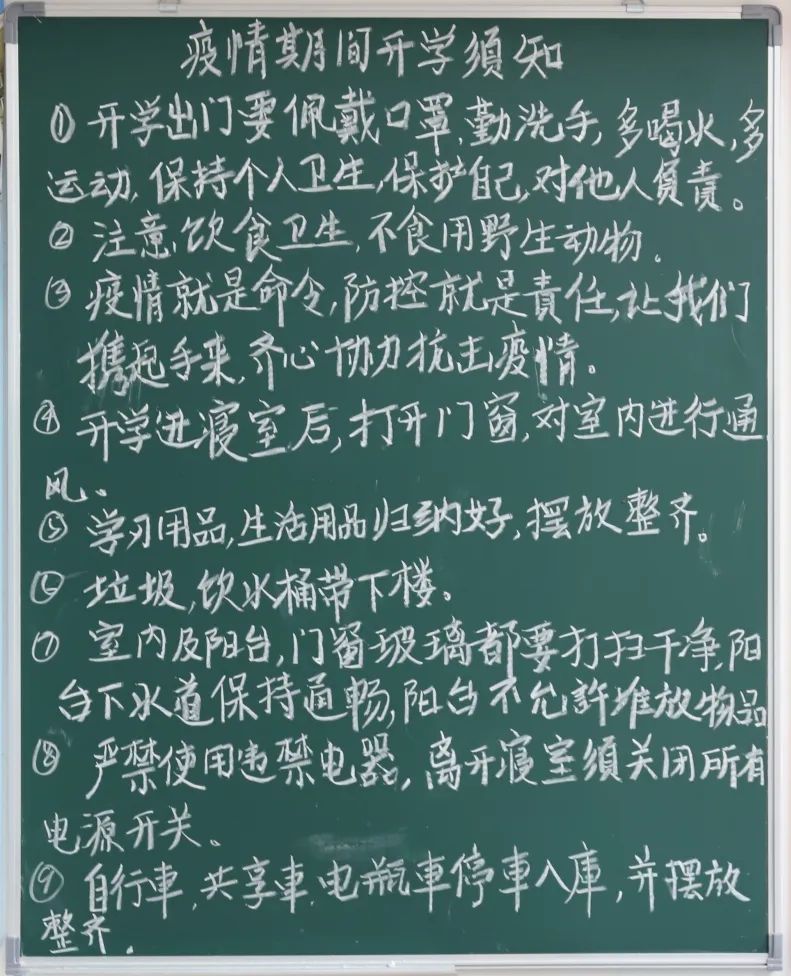 疫情期间开学须知
① 开学出门要佩戴口罩,勤洗手,多喝水,多
运动,保持个人卫生,保护自己,对他人負責。
② 注意饮食卫生,不食用野生动物。
③ 疫情就是命令,防控就是責任,让我们
携起手来,齐心协力抗击疫情。
④ 开学进寝室后,打开门窗,对室内进行通
风。
⑤ 学习用品,生活用品归纳好,摆放整齐。
⑥ 垃圾,饮水桶带下楼。
⑦ 室内及阳台,门窗玻璃都要打扫干净,阳
台下水道保持通畅,阳台不允許堆放物品
⑧ 严禁使用违禁电器,离开寝室须关闭所有
电源开关。
⑨ 自行車,共享車,电瓶車停車入庫,并摆放
整齐.